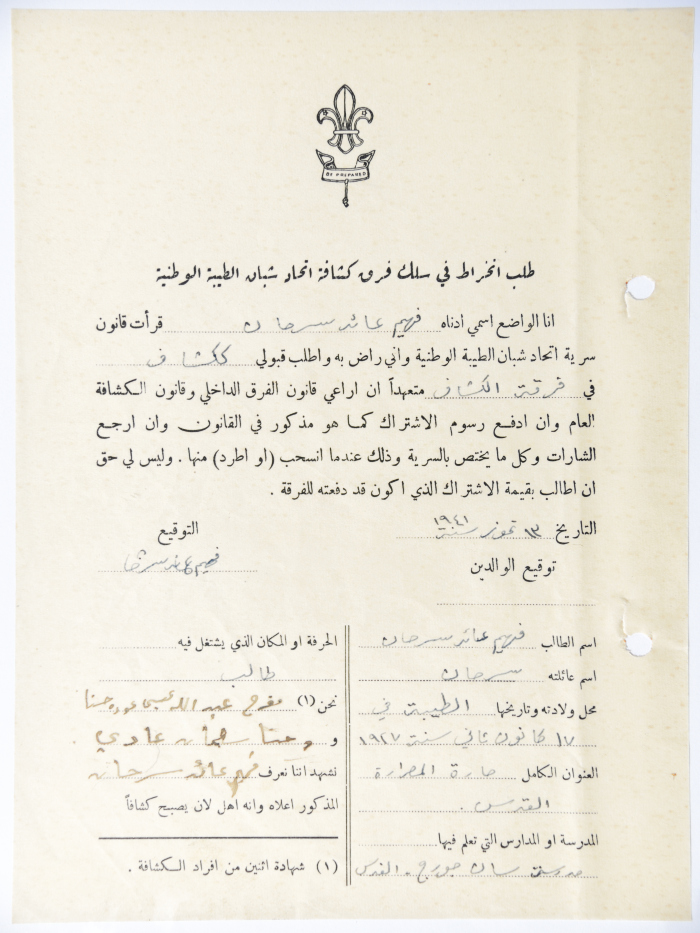 BE PREPARED
طلب انخراط في سلك فرق كشافة اتحاد شبان الطيبة الوطنية
انا الواضع اسمي ادناه فهيم عائد سرحان قرأت قانون
سرية اتحاد شبان الطيبة الوطنية واني راض به واطلب قبولي ككشاف
في فرقة الكشاف متعهداً ان اراعي قانون الفرق الداخلي وقانون الكشافة
العام وان ادفع رسوم الاشتراك كما هو مذكور في القانون وان ارجع
الشارات وكل ما يختص بالسرية وذلك عندما انسحب (او اطرد) منها . وليس لي حق
ان اطالب بقيمة الاشتراك الذي اكون قد دفعته للفرقة .
التاريخ ١٣ تموز سنة ١٩٤١
التوقيع
فهيم عائد سرحان
توقيع الوالدين
اسم الطالب فهيم عائد سرحان
اسم عائلته سرحان
محل ولادته وتاريخها الطيبة في
١٧ كانون ثاني سنة ١٩٢٧
العنوان الكامل حارة المصرارة
القدس .
المدرسة او المدارس التي تعلم فيها
مدرسة سان جورج - القدس
الحرفة او المكان الذي يشتغل فيه
طالب
نحن (١) مفرح عبد الله عيسى حنا
و حنا عادي
نشهد اننا نعرف فهيم عائد سرحان
المذكور اعلاه وانه اهل لان يصبح كشافاً
(١) شهادة اثنين من افراد الكشافة .